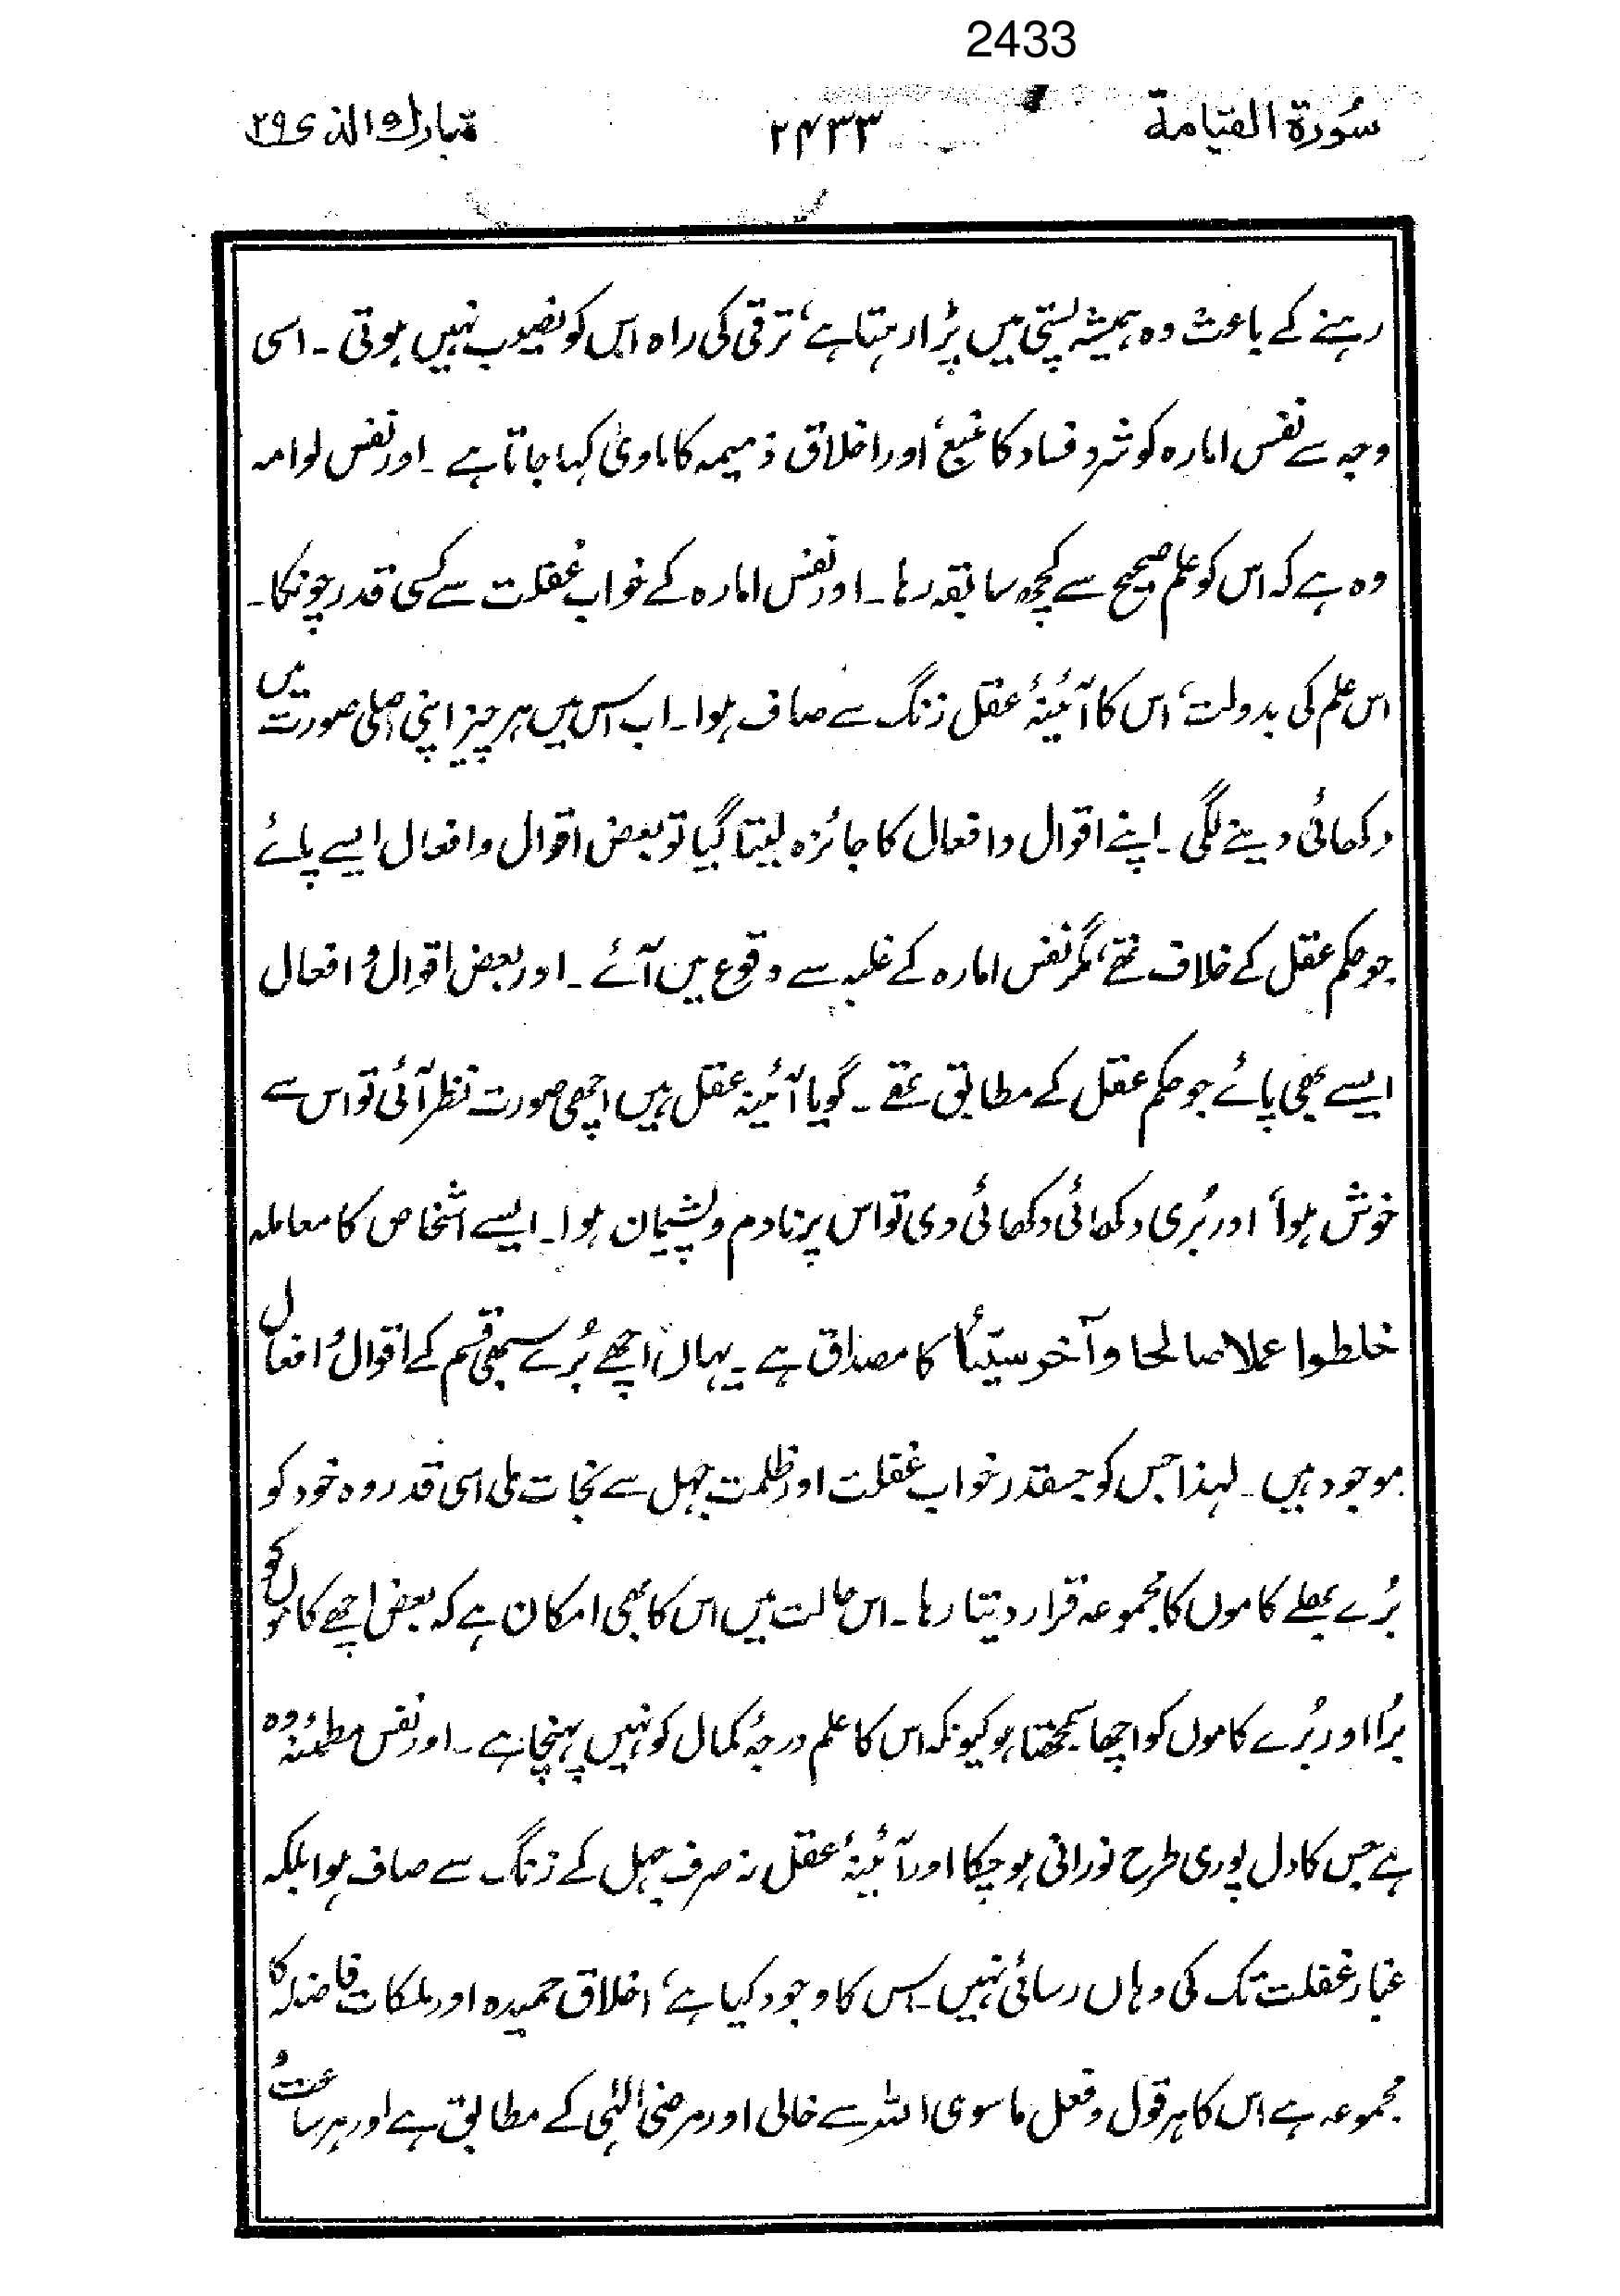 2433
سُورة القيامة ۲۴۳۳ تبارك الذی ۲۹
رہنے کے باعث وہ ہمیشہ پستی میں پڑا رہتا ہے، ترقی کی راہ اس کو نصیب نہیں ہوتی ۔ اسی
وجہ سے نفس امارہ کو شر و فساد کا منبع، اور اخلاق ذمیمہ کا ماویٰ کہا جاتا ہے ۔ اور نفس لوامہ
وہ ہے کہ اس کو علم صحیح سے کچھ سابقہ رہا ۔ اور نفس امارہ کے خواب غفلت سے کسی قدر چونکا ۔
اس علم کی بدولت، اس کا آئینۂ عقل زنگ سے صاف ہوا ۔ اب اس میں ہر چیز اپنی اصلی صورت میں
دکھائی دینے لگی ۔ اپنے اقوال و افعال کا جائزہ لیتا گیا تو بعض اقوال و افعال ایسے پائے
جو حکم عقل کے خلاف تھے، مگر نفس امارہ کے غلبہ سے وقوع میں آئے ۔ اور بعض اقوال و افعال
ایسے بھی پائے جو حکم عقل کے مطابق تھے ۔ گویا آئینہ عقل میں اچھی صورت نظر آئی تو اس سے
خوش ہوا، اور بُری دکھائی دکھائی دی تو اس پر نادم و پشیمان ہوا ۔ ایسے اشخاص کا معاملہ
خلطوا عملا صالحا وآخر سیّئاً کا مصداق ہے ۔ یہاں اچھے بُرے سبھی قسم کے اقوال و افعال
موجود ہیں ۔ لہذا جس کو جسقدر خواب غفلت اور ظلمت جہل سے نجات ملی اسی قدر وہ خود کو
بُرے بھلے کاموں کا مجموعہ قرار دیتا رہا ۔ اس حالت میں اس کا بھی امکان ہے کہ بعض اچھے کاموں کو
بُرا اور بُرے کاموں کو اچھا سمجھتا ہو کیونکہ اس کا علم درجۂ کمال کو نہیں پہنچا ہے ۔ اور نفس مطمئنہ وہ
ہے جس کا دل پوری طرح نورانی ہو چکا اور آئینۂ عقل نہ صرف جہل کے زنگ سے صاف ہوا بلکہ
غبار غفلت تک کی وہاں رسائی نہیں ۔ اس کا وجود کیا ہے، اخلاق حمیدہ اور ملکات فاضلہ کا
مجموعہ ہے اس کا ہر قول و فعل ماسوی اللہ سے خالی اور مرضیٔ الٰہی کے مطابق ہے اور ہر ساعت و